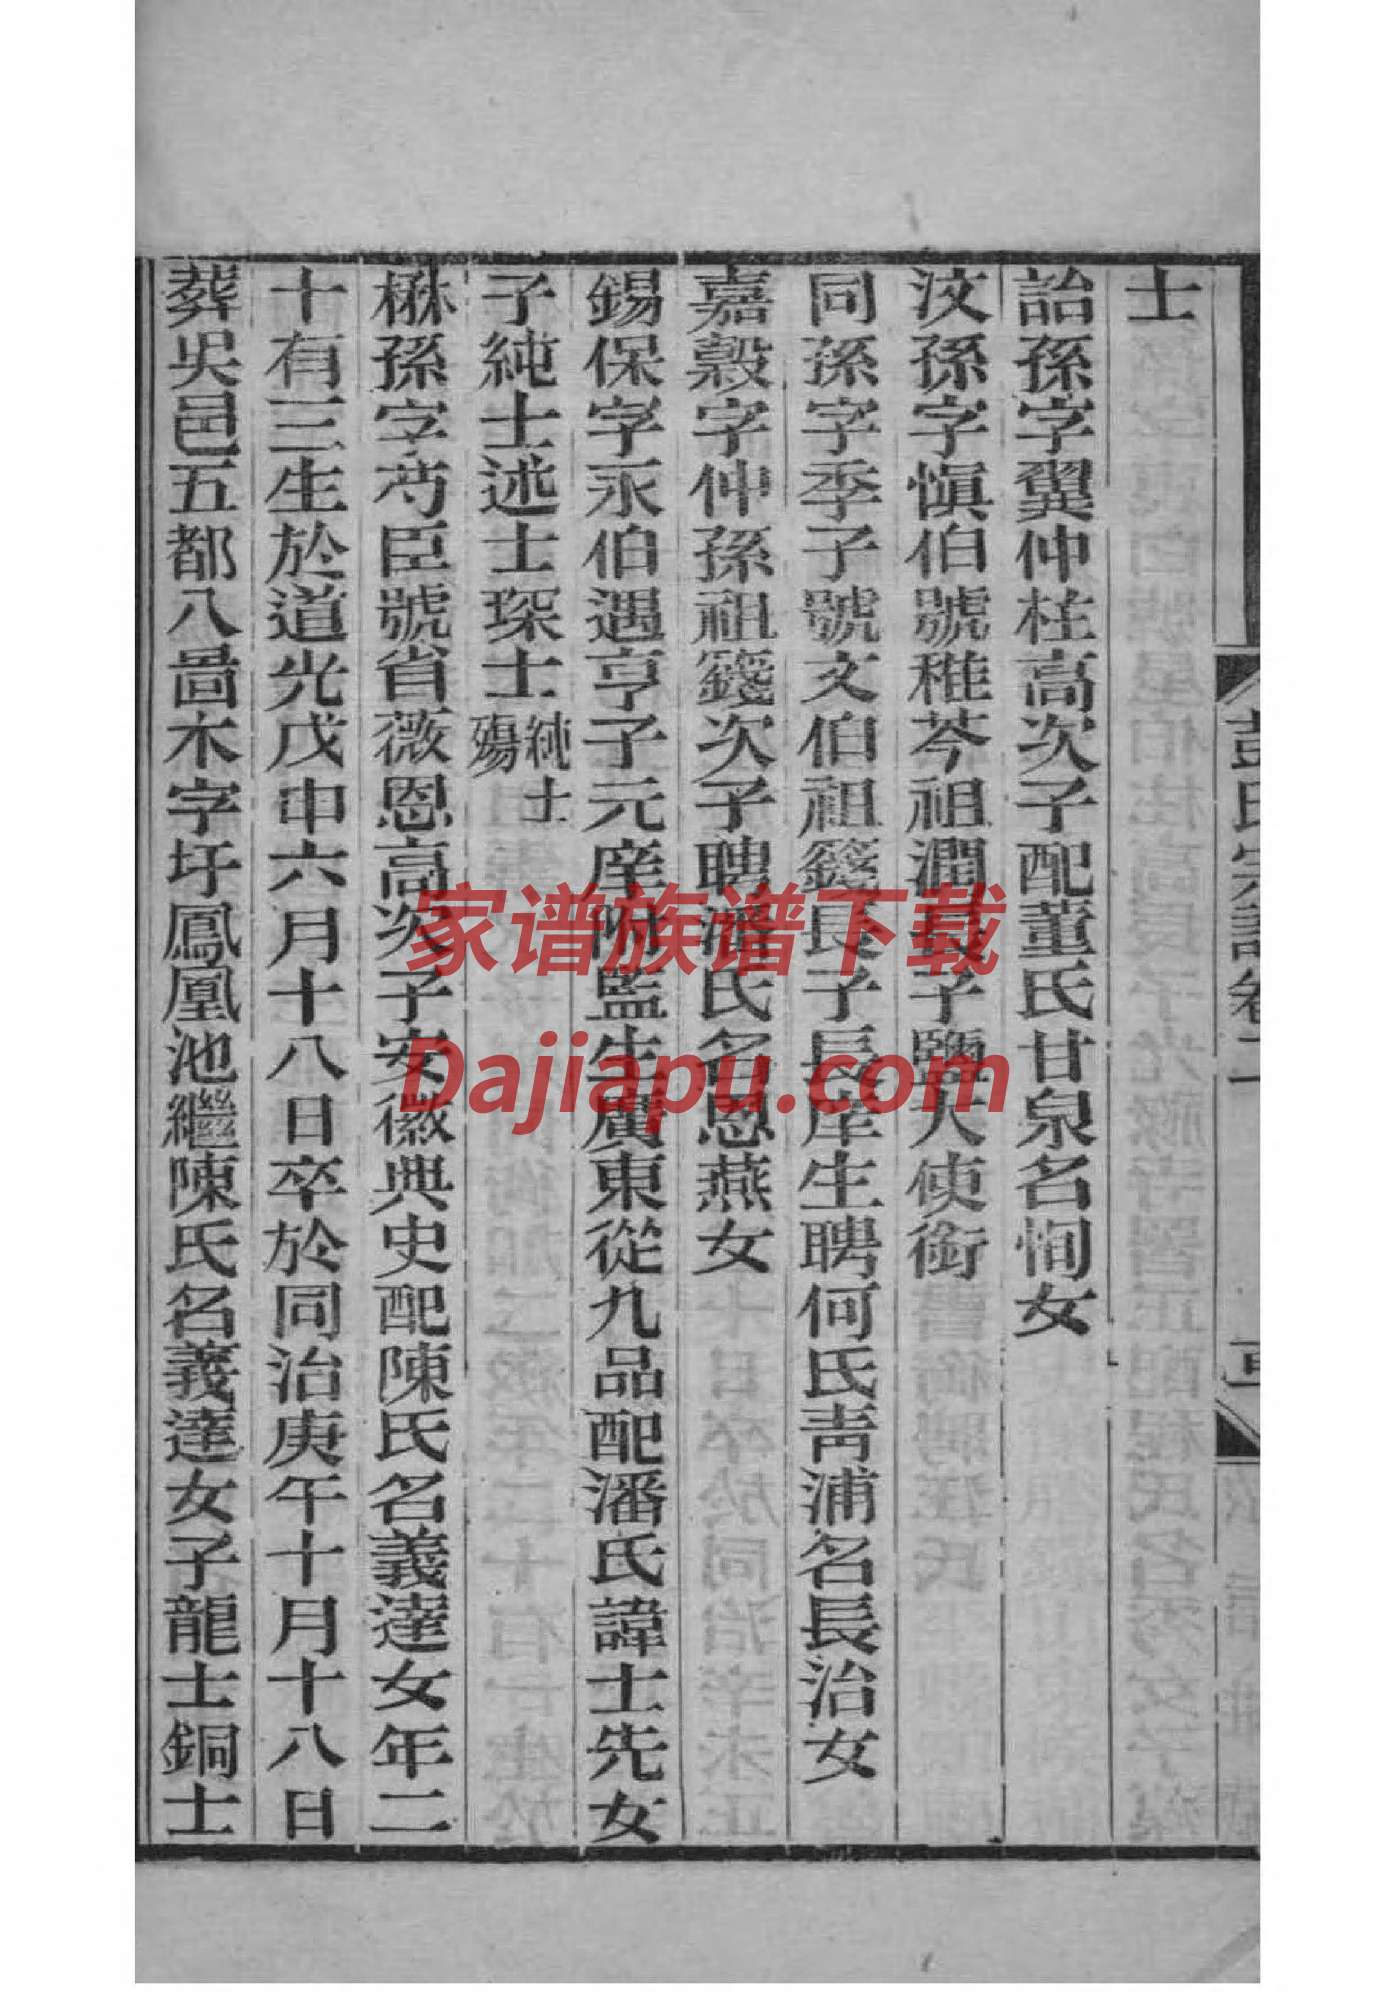 士
詒孫字翼仲柱高次子配董氏甘泉名恂女
汶孫字愼伯號稚苓祖潤長子鹽大使銜
同孫字季子號文伯祖籛長子長庠生聘何氏靑浦名長治女
嘉穀字仲孫祖籛次子聘潘氏名恩燕女
錫保字永伯遇亨子元庠附監生廣東從九品配潘氏諱士先女
子純士述士琛士純士殤
楙孫字芍臣號省薇恩高次子安徽典史配陳氏名義達女年二
十有三生於道光戊申六月十八日卒於同治庚午十月十八日
葬吳邑五都八啚木字圩鳳凰池繼陳氏名義達女子龍士銅士
彭氏宗譜卷二
家谱族谱下载
Dajiapu.com